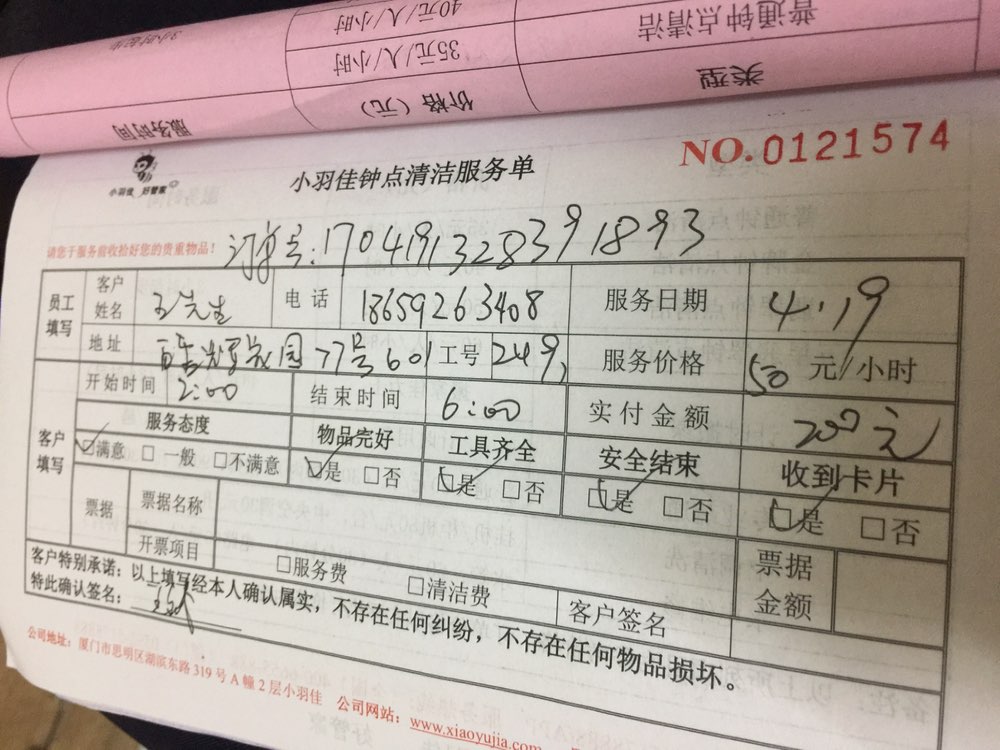 3小时起步 40元/人/小时 普通钟点清洁
35元/人/小时
服务时间 价格（元） 类型
NO.0121574
小羽佳 好管家
小羽佳钟点清洁服务单
请您于服务前收拾好您的贵重物品！
订单号:170419132839 1893
员工填写 客户姓名 王先生 电话 18659263408 服务日期 4.19
地址 园77号601 工号 249, 服务价格 50 元/小时
客户填写 开始时间 2:00 结束时间 6:00 实付金额 200元
服务态度 物品完好 工具齐全 安全结束 收到卡片
☑满意 □一般 □不满意 ☑是 □否 ☑是 □否 ☑是 □否 ☑是 □否
票据 票据名称 票据金额
开票项目 □服务费 □清洁费 客户签名
客户特别承诺：以上填写经本人确认属实，不存在任何纠纷，不存在任何物品损坏。
特此确认签名：
公司地址：厦门市思明区湖滨东路319号A幢2层小羽佳 公司网站：www.xiaoyujia.com